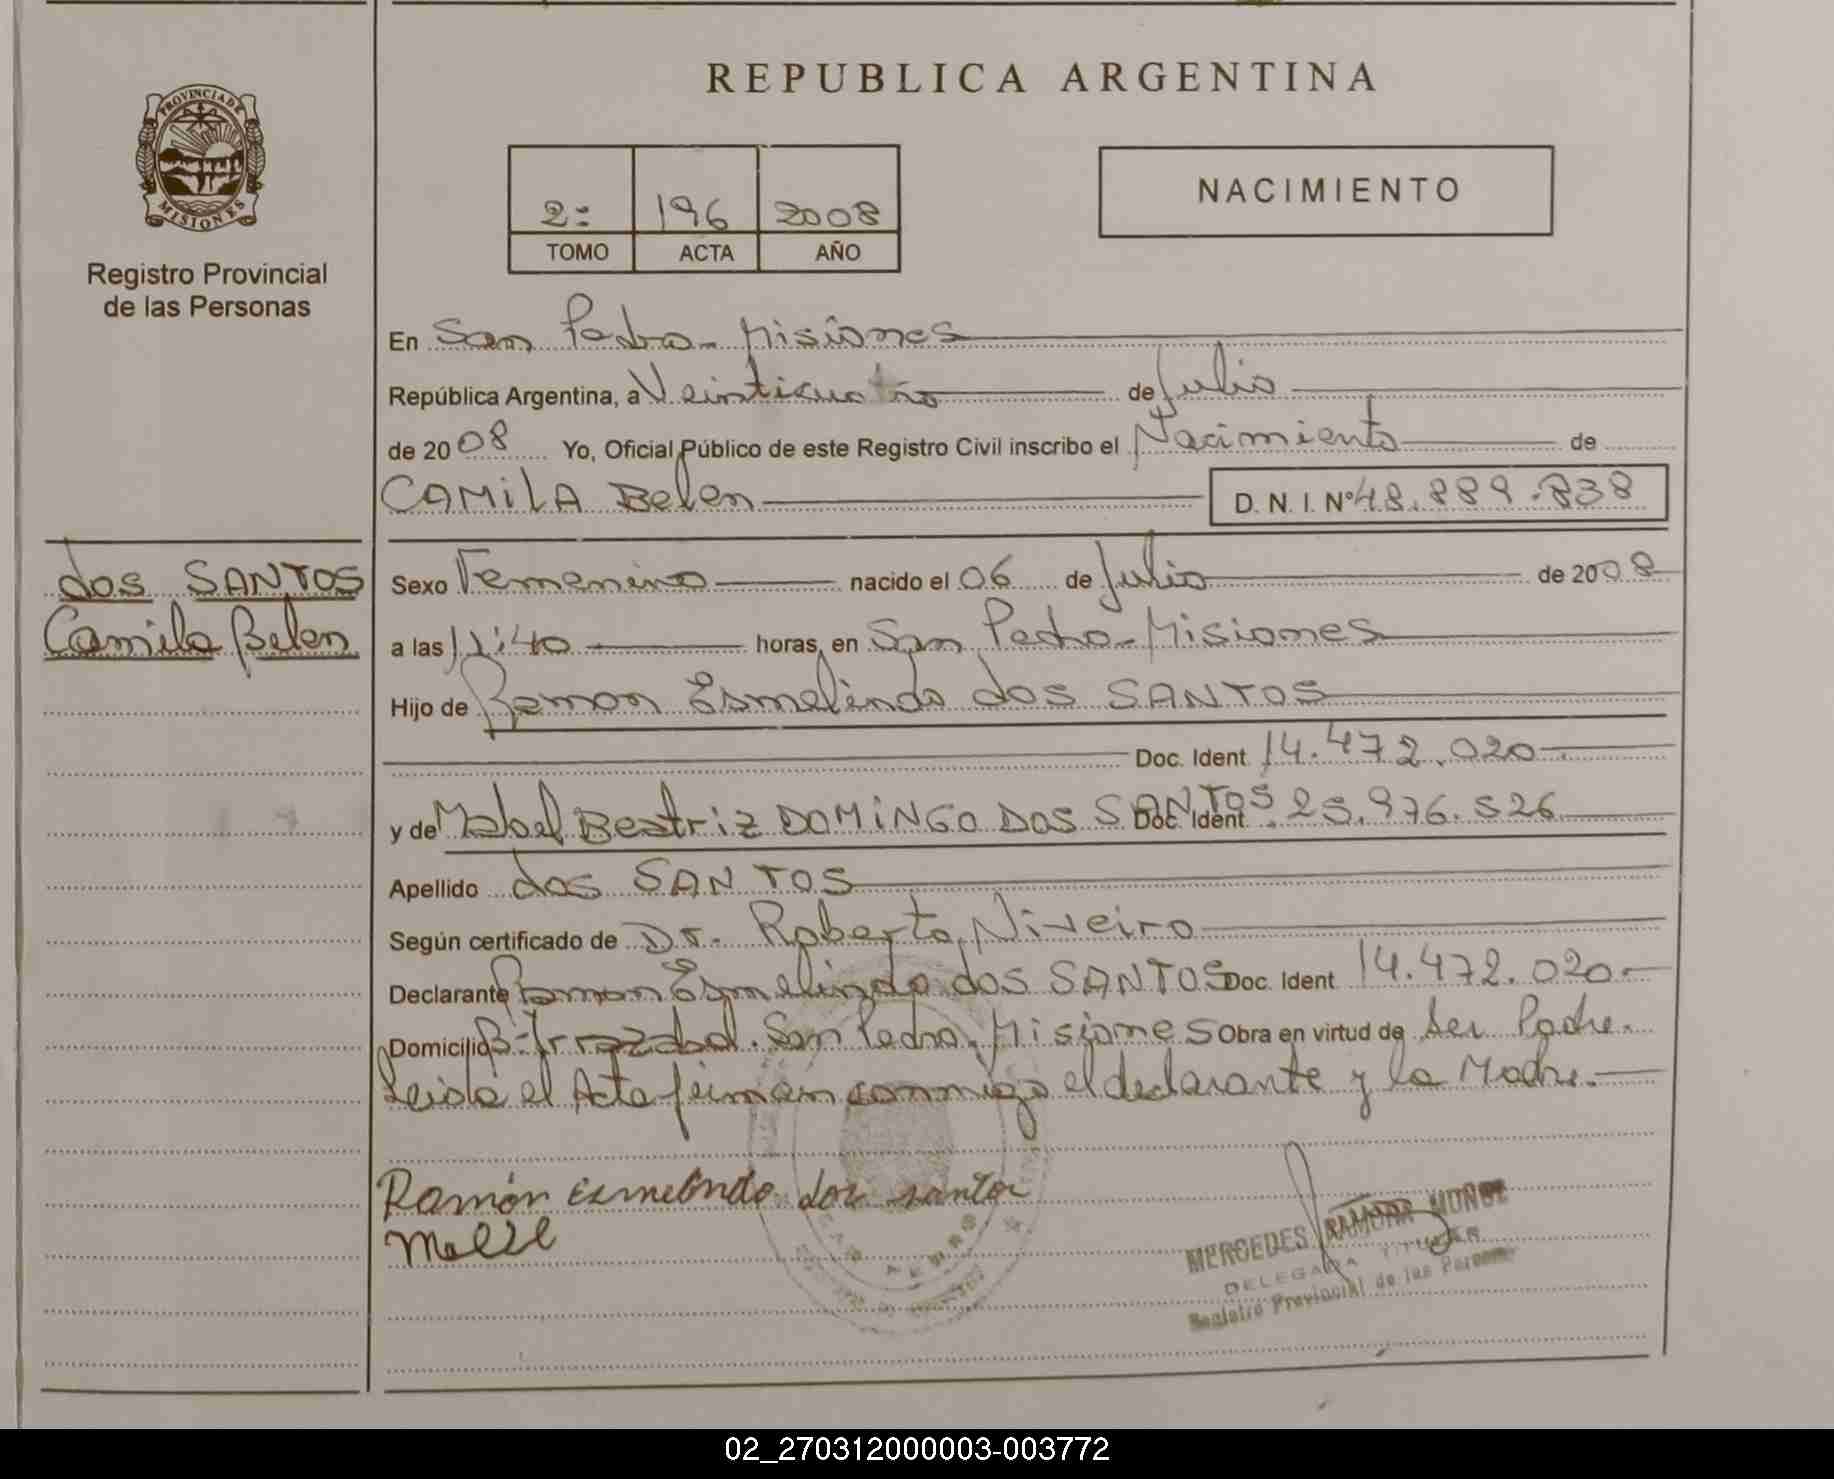 REPUBLICA ARGENTINA
PROVINCIA DE
MISIONES
Registro Provincial
de las Personas
2= 196 2008
TOMO ACTA AÑO
NACIMIENTO
En San Pedro - Misiones
República Argentina, a Veinticuatro de Julio
de 2008 Yo, Oficial Público de este Registro Civil inscribo el Nacimiento de
CAMiLA Belen D. N. I. Nº 48.889.838
dos SANTOS
Camila Belen
Sexo Femenino nacido el 06 de Julio de 2008
a las 11:40 horas, en San Pedro - Misiones
Hijo de Ramon Esmelindo dos SANTOS
Doc. Ident. 14.472.020
y de Mabel Beatriz DOMiNGO DOS SANTOS Doc. Ident. 25.976.526
Apellido dos SANTOS
Según certificado de Dr. Roberto Niveiro
Declarante Ramon Esmelindo dos SANTOS Doc. Ident. 14.472.020
Domicilio B- Irrazabal. San Pedro. Misiones Obra en virtud de ser Padre.
Leida el Acta firman conmigo el declarante y la Madre.
Ramón Esmelindo dos santos
MERCEDES RAMONA MUÑOZ
DELEGADA TITULAR
Registro Provincial de las Personas
02_270312000003-003772